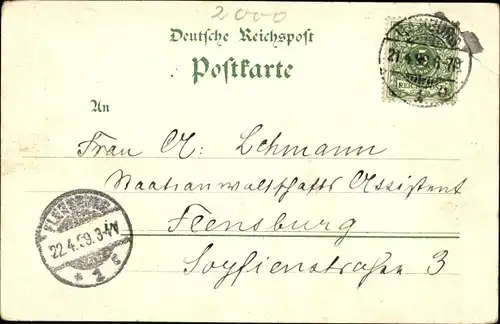 2000
Deutsche Reichspost
Postkarte
An
Frau A. Lehmann
Staatsanwaltschafts Assistent
Flensburg
Sophienstraße 3
21.4.99.6-7N
REICHSPOST
FLENSBURG
22.4.99.3-4N
* 2 c